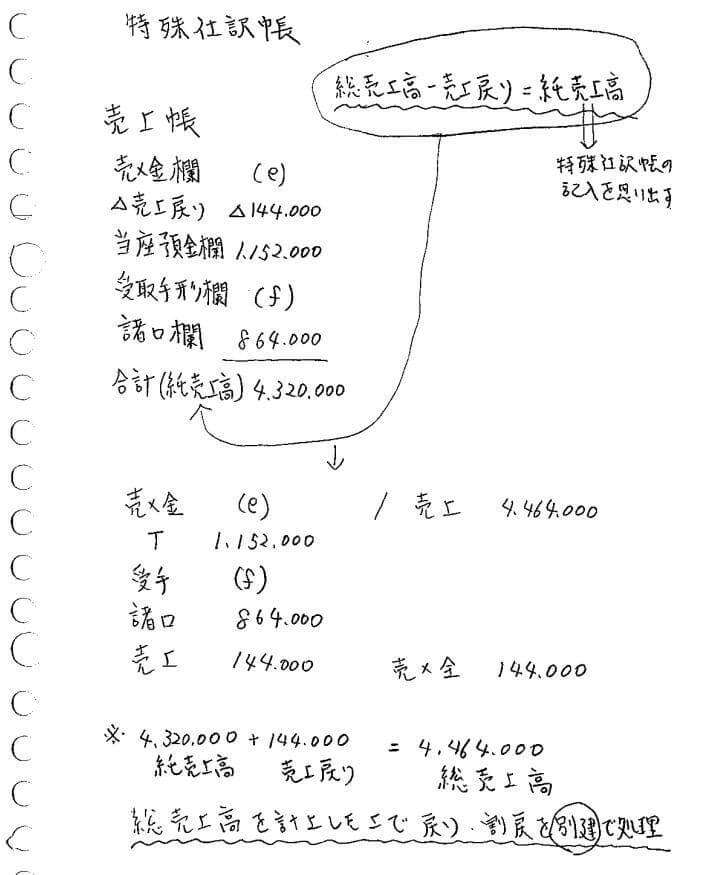 特殊仕訳帳
総売上高-売上戻り=純売上高
特殊仕訳帳の
記入を思い出す
売上帳
売×金欄 (e)
△売上戻り △144.000
当座預金欄 1.152.000
受取手形欄 (f)
諸口欄 864.000
合計(純売上高) 4.320.000
売×金 (e) / 売上 4.464.000
T 1.152.000
受手 (f)
諸口 864.000
売上 144.000 売×金 144.000
※ 4.320.000 + 144.000 = 4.464.000
純売上高 売上戻り 総売上高
総売上高を計上した上で戻り・割戻を別建で処理